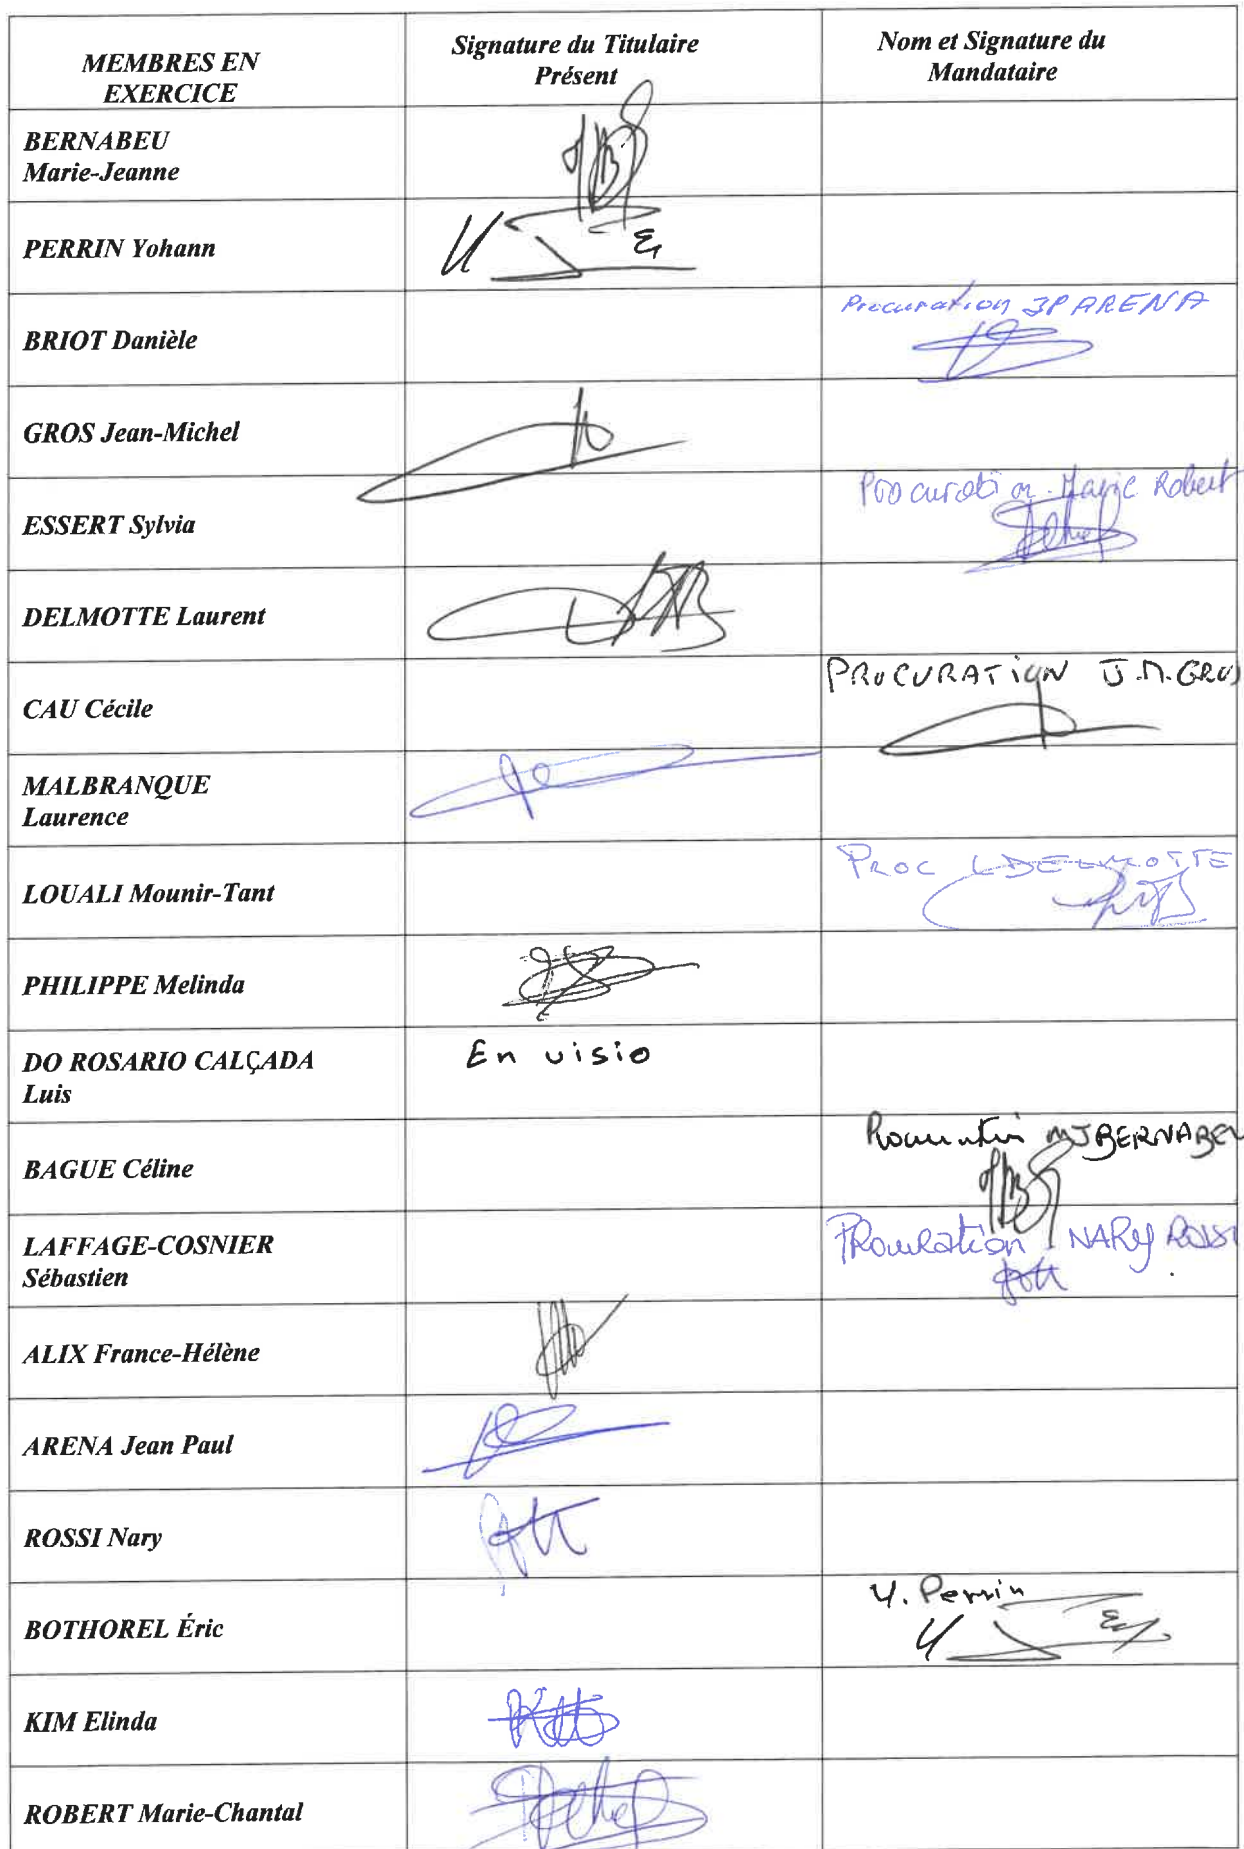 MEMBRES EN
EXERCICE
Signature du Titulaire
Présent
Nom et Signature du
Mandataire
BERNABEU
Marie-Jeanne
PERRIN Yohann
BRIOT Danièle
Procuration JP ARENA
GROS Jean-Michel
ESSERT Sylvia
Procuration Robert
DELMOTTE Laurent
CAU Cécile
PROCURATION J.M. GROS
MALBRANQUE
Laurence
LOUALI Mounir-Tant
PROC L DELMOTTE
PHILIPPE Melinda
DO ROSARIO CALÇADA
Luis
En visio
BAGUE Céline
Procuration MJ BERNABEU
LAFFAGE-COSNIER
Sébastien
PROcuRation NARY ROSSI
ALIX France-Hélène
ARENA Jean Paul
ROSSI Nary
BOTHOREL Éric
Y. Perrin
KIM Elinda
ROBERT Marie-Chantal